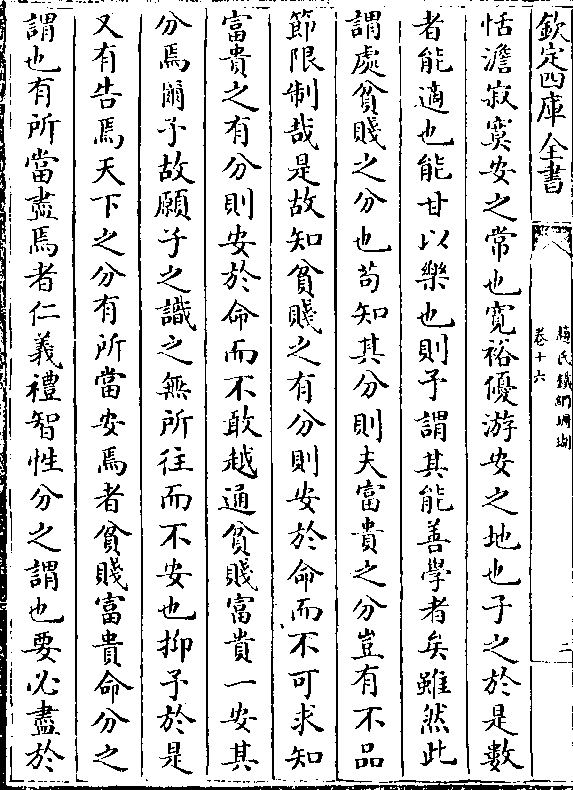 欽定四庫全書
趙氏鐵網珊瑚
卷十六
二
恬澹寂寞安之常也寛裕優游安之地也子之於是數
者能適也能甘以樂也則予謂其能善學者矣雖然此
謂處貧賤之分也苟知其分則夫富貴之分豈有不品
節限制哉是故知貧賤之有分則安於命而不可求知
富貴之有分則安於命而不敢越通貧賤富貴一安其
分焉爾予故願子之識之無所往而不安也抑予於是
又有告焉天下之分有所當安焉者貧賤富貴命分之
謂也有所當盡焉者仁義禮智性分之謂也要必盡於